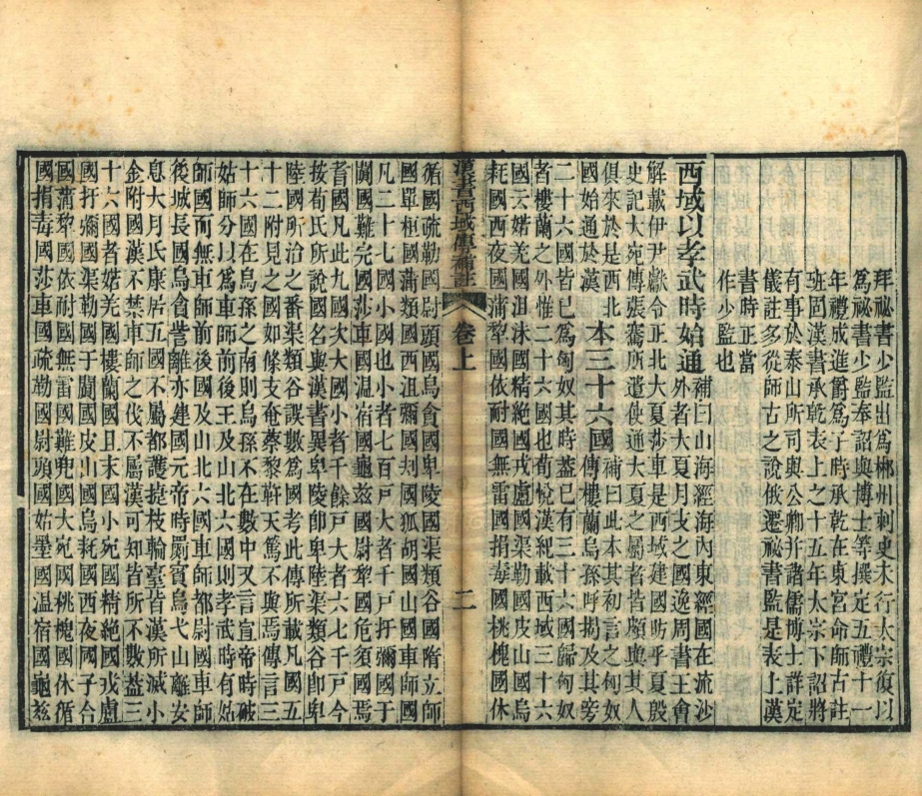 拜祕書少監出爲郴州刺史未行太宗復以
爲祕書少監奉詔與博士等撰定五禮十一
年禮成進爵爲子時承乾在東宮命師古註
班固漢書承乾表上之十五年太宗下詔將
有事於泰山所司與公卿并諸儒博士詳定
儀註多從師古之說俄遷祕書監是表上漢
書時正當
作少監也
西域以孝武時始通補曰山海經海內東經國在流沙
外者大夏月支之國逸周書王會
解載伊尹獻令正北大夏莎車是西域建國昉乎夏殷
史記大宛傳張騫所遣使通大夏之屬者皆頗與其人
俱來於是西北
國始通於漢
本三十六國補曰此本其初言之匈奴
傳樓蘭烏孫呼揭及其旁
二十六國皆已爲匈奴其時蓋已有三十六國歸匈奴
者樓蘭之外惟二十六國也荀悅漢紀載西域三十六
國云婼羌國沮沫國精絕國戎盧國渠勒國皮山國烏
耗國西夜國蒲犁國依耐國無雷國捐毒國桃槐國休
漢書西域傳補註 卷上 二
循國疏勒國尉頭國烏貪國卑陵國渠類谷國隋立師
國單桓國蒲類國西沮彌國刦國狐胡國山國車師國
凡二十七國小國也小者七百戶大者千戶扜彌國于
闐國難完國莎車國温宿國龜兹國尉犁國危須國焉
耆國凡此九國次大國小者千餘戶大者六七千戶今
按荀氏所說國名與漢書異卑陵卽卑陸渠類谷卽卑
陸國所治之番渠類谷誤數爲國考此傳所載凡國五
十二附見之國如條支奄蔡黎軒天篤不與焉傳言三
十六國在烏孫之南則烏孫不在數中又言宣帝時破
姑師分以爲車師前後王及山北六國則孝武時有姑
師國而無車師前後國及山北六國車師都尉國車師
後城長國烏貪訾離亦建國元帝時罽賓烏弋山離安
息大月氏康居五國不屬都護枝輪臺皆漢所滅小
金附國漢不禁車師之伐不屬漢可知皆所不數蓋三
十六國者婼羌國樓蘭國且末國小宛國精絕國戎盧
國扜彌國渠勒國于闐國皮山國烏耗國西夜國子合
國蒲犁國依耐國無雷國難兜國大宛國桃槐國休循
國捐毒國莎車國疏勒國尉頭國姑墨國温宿國龜兹